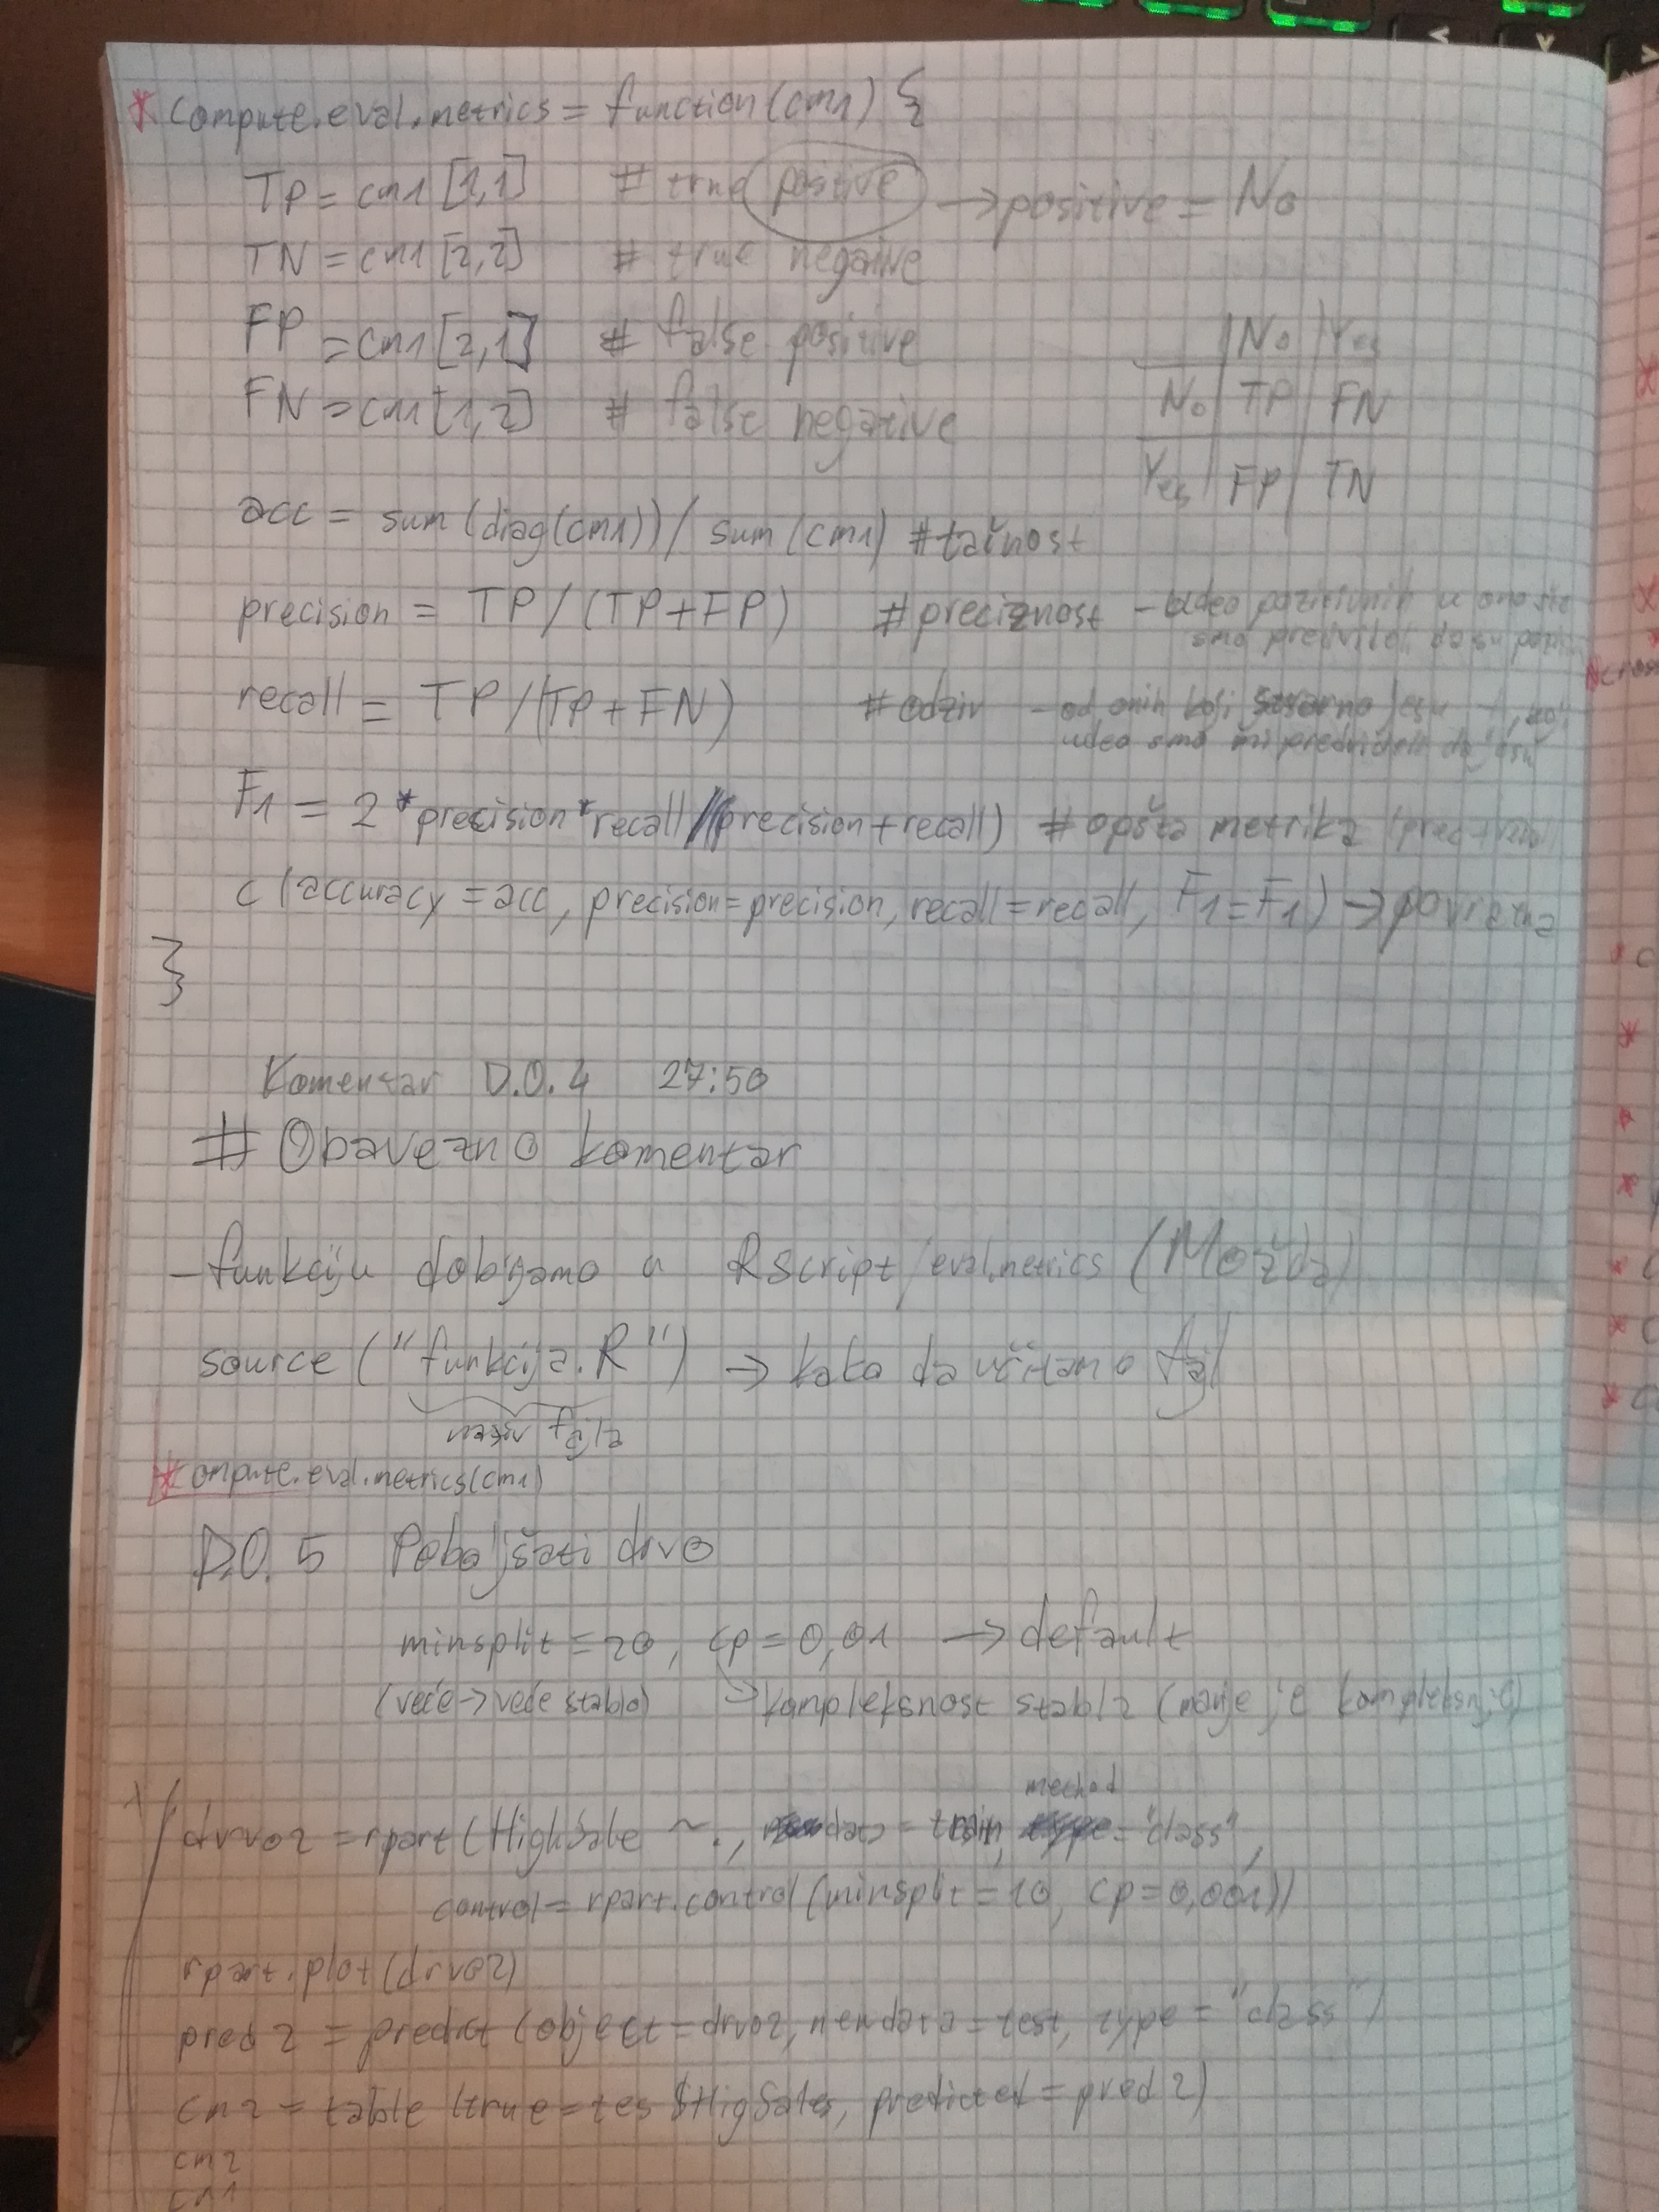 * compute.eval.metrics = function(cm1) {
TP = cm1[1,1] # true positive → positive = No
TN = cm1[2,2] # true negative
FP = cm1[2,1] # false positive
FN = cm1[1,2] # false negative
No Yes
No TP FN
Yes FP TN
acc = sum(diag(cm1)) / sum(cm1) #tačnost
precision = TP/(TP+FP) #preciznost - udeo pozitivnih u ono što
smo predvideli da su
recall = TP/(TP+FN) #odziv - od onih koji stvarno jesu
udeo smo mi predvideli da jesu
F1 = 2*precision*recall/(precision+recall) # opšta metrika
c(accuracy=acc, precision=precision, recall=recall, F1=F1) → povratna
}
Komentar D.O.4 27:50
# Obavezno komentar
-funkciju dobijamo u Rscript/eval.metrics (Možda)
source("funkcija.R") → kako da učitamo fajl
naziv fajla
*ompute.eval.metrics(cm1)
D.O.5 Poboljšati drvo
minsplit = 20, cp = 0,01 → default
(veće→veće stablo) →kompleksnost stabla (manje je kompleksnije)
method
drvo2 = rpart(HighSale ~., data = train, = "class",
control = rpart.control(minsplit = 10, cp=0,001))
rpart.plot(drvo2)
pred2 = predict(object=drvo2, newdata=test, type = "class")
cm2 = table(true=tes$HigSales, predicted=pred2)
cm2
cm1